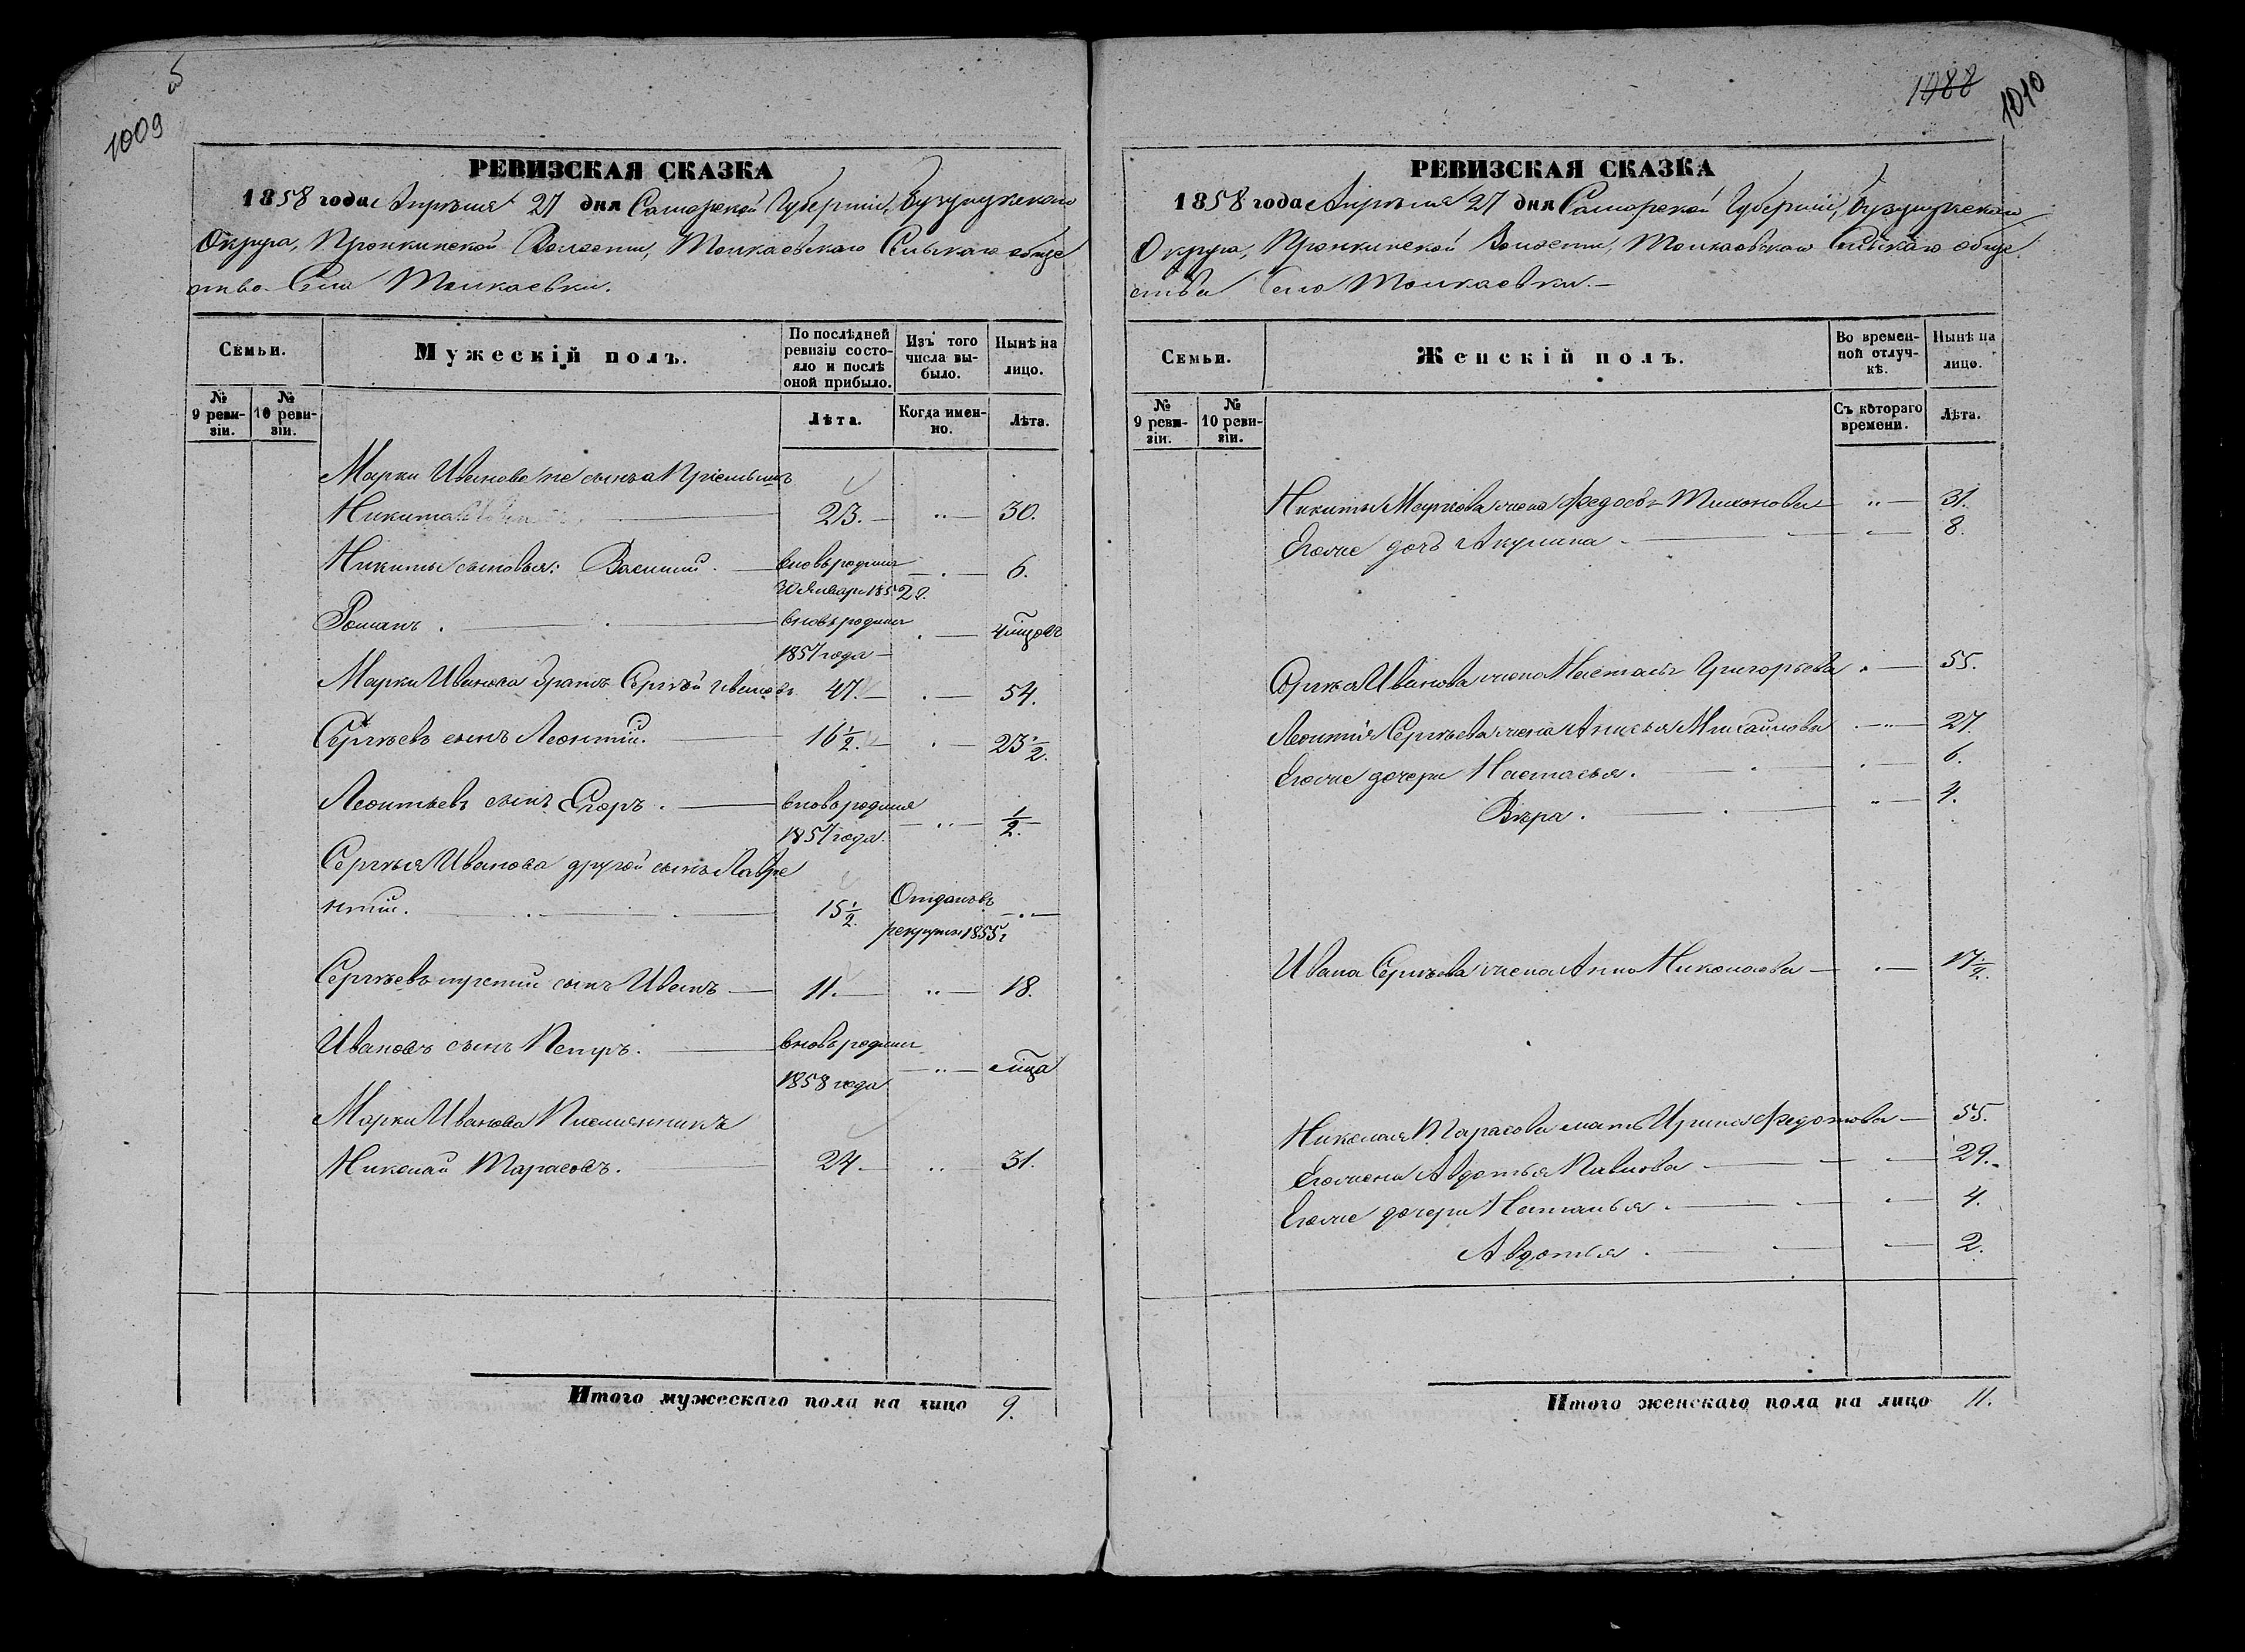 1009
РЕВИЗСКАЯ СКАЗКА
1858 года Апрѣля 27 дня Самарской Губерніи, Бузулукскаго
Округа, Пронкинской Волости, Толкаевскаго Сельскаго обще
ства Села Толкаевки.
Семьи.
Мужескій полъ.
По послѣдней ревизіи состояло и послѣ оной прибыло.
Изъ того числа выбыло.
Нынѣ на лицо.
№ 9 ревизіи.
№ 10 ревизіи.
Лѣта.
Когда именно.
Лѣта.
Марки Иванова
Никита 23. 30.
Никиты сыновья: Василий. вновь родился 6.
30 Января 1852 г.
Романъ. вновь родился 4 мцовъ
1857 года
Марки Иванова братъ Сергѣй Ивановъ 47. 54.
Сергѣевъ сынъ Леонтій. 16 1/2. 23 1/2.
Леонтьевъ сынъ Егоръ. вновь родился 1/2.
1857 года.
Сергѣя Иванова другой сынъ Лавре
нтій. 15 1/2. Отданъ въ
рекруты 1855 г
Сергѣевъ третий сынъ Иванъ 11. 18.
Ивановъ сынъ Петръ. вновь родился мца
1858 года
Марки Иванова Племянникъ
Николай Тарасовъ. 24. 31.
Итого мужескаго пола на лицо 9.
1088
1010
РЕВИЗСКАЯ СКАЗКА
1858 года Апрѣля 27 дня Самарской Губерніи, Бузулукскаго
Округа, Пронкинской Волости, Толкаевскаго Сельскаго обще
ства Села Толкаевки.
Семьи.
Женскій полъ.
Во временной отлучкѣ.
Нынѣ на лицо.
№ 9 ревизіи.
№ 10 ревизіи.
Съ котораго времени.
Лѣта.
Никиты Маркова жена Федосья Тихонова 31.
Егоже дочь Акулина. 8.
Сергѣя Иванова жена Григорьева 55.
Леонтія Сергѣева жена Анисья Михайлова 27.
Егоже дочери Настасья. 6.
Вѣра. 4.
Ивана Сергѣева жена Анна Николаева 17 1/2.
Николая Тарасова мать Ирина Федотова 55.
Егожена Авдотья Павлова 29.
Егоже дочери Наталья. 4.
Авдотья. 2.
Итого женскаго пола на лицо 11.